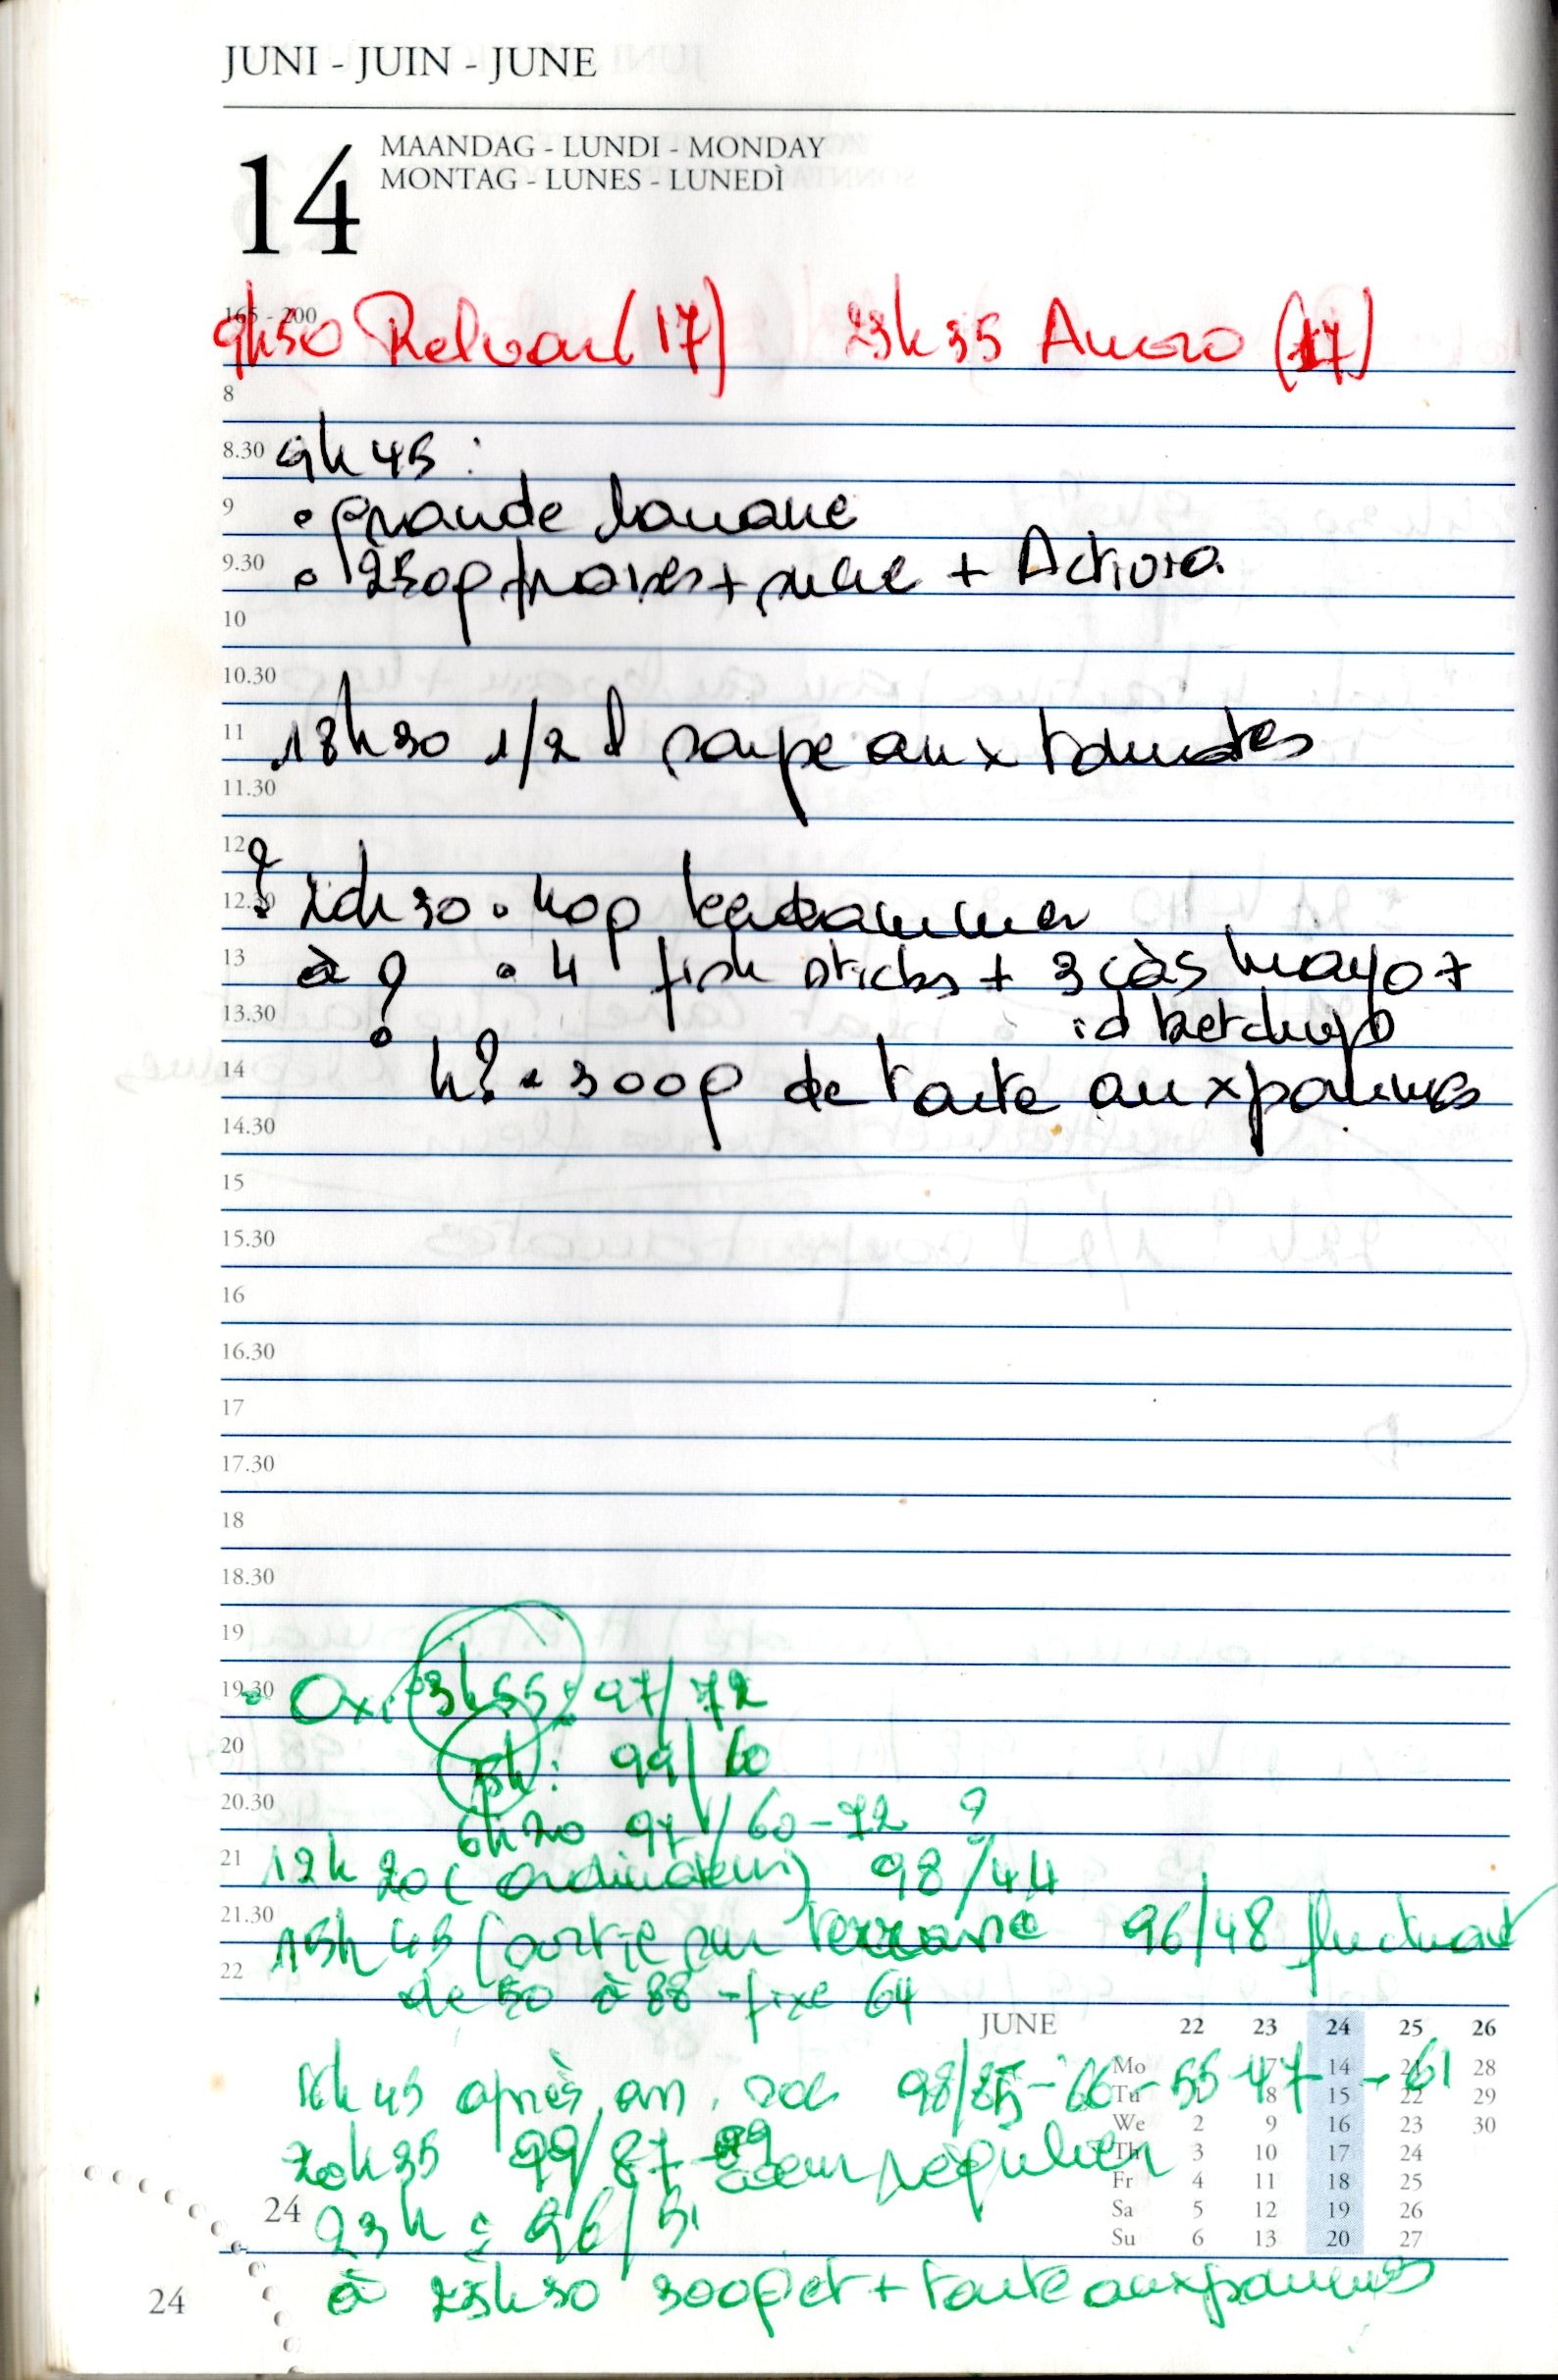 JUNI - JUIN - JUNE
14
MAANDAG - LUNDI - MONDAY
MONTAG - LUNES - LUNEDÌ
165 - 200
9h50 Relvar (17) 23h35 Anoro (17)
8
8.30 9h45 :
9 • grande banane
9.30 • 250g fraises + sucre + Activia
10
10.30
11 18h30 1/2 l soupe aux tomates
11.30
12 ?
12.30 20h30 • 40g leerdammer
13 à ? • 4 fish sticks + 3 càs mayo +
13.30 id ketchup
14 h? • 300g de tarte aux pommes
14.30
15
15.30
16
16.30
17
17.30
18
18.30
19
19.30 - Oxi 3h55 : 97/72
20 5h : 99/60
20.30 6h20 97/60-72 ?
21 12h20 (ordinateur) 98/44
21.30 15h45 (sortie sur terrasse 96/48 fluctuant
22 de 50 à 88 - fixe 64
JUNE 22 23 24 25 26
Mo 7 14 21 28
Tu 1 8 15 22 29
We 2 9 16 23 30
Th 3 10 17 24
Fr 4 11 18 25
Sa 5 12 19 26
Su 6 13 20 27
18h45 après 98/85-66-55-47-61
20h35 99/87-89 coeur régulier
24 23h : 96/51
à 23h30 300g et + tarte aux pommes
24